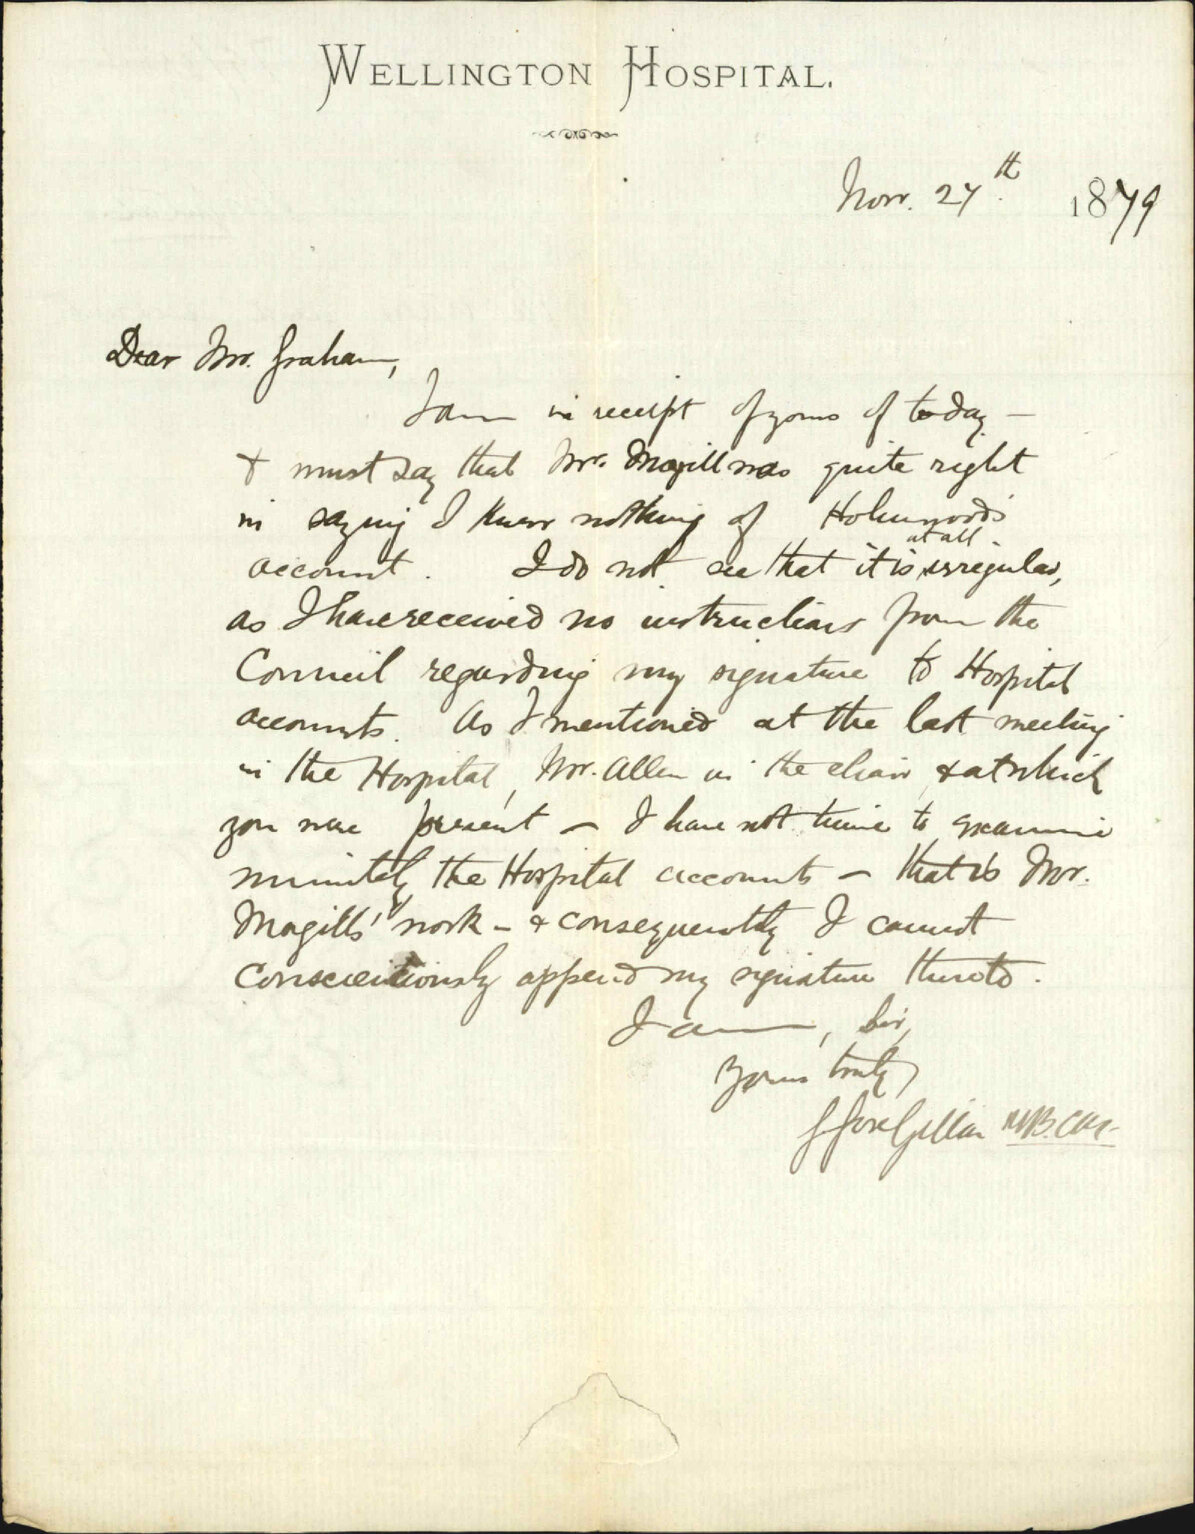 WELLINGTON HOSPITAL.
Novr. 27th. 1879
Dear Mr. Graham,
I am in receipt of yours of today —
& must say that Mr. Magill was quite right
in saying I knew nothing of Holmwood's
account. I do not see that it is at all irregular,
as I have received no instructions from the
Council regarding my signature to Hospital
accounts. As I mentioned at the last meeting
in the Hospital, Mr. Allen in the chair, & at which
you were present — I have not time to examine
minutely the Hospital accounts — that is Mr.
Magills' work — & consequently I cannot
conscientiously append my signature thereto.
I am, Sir,
Yours truly,
Gillon M.B.C.M.